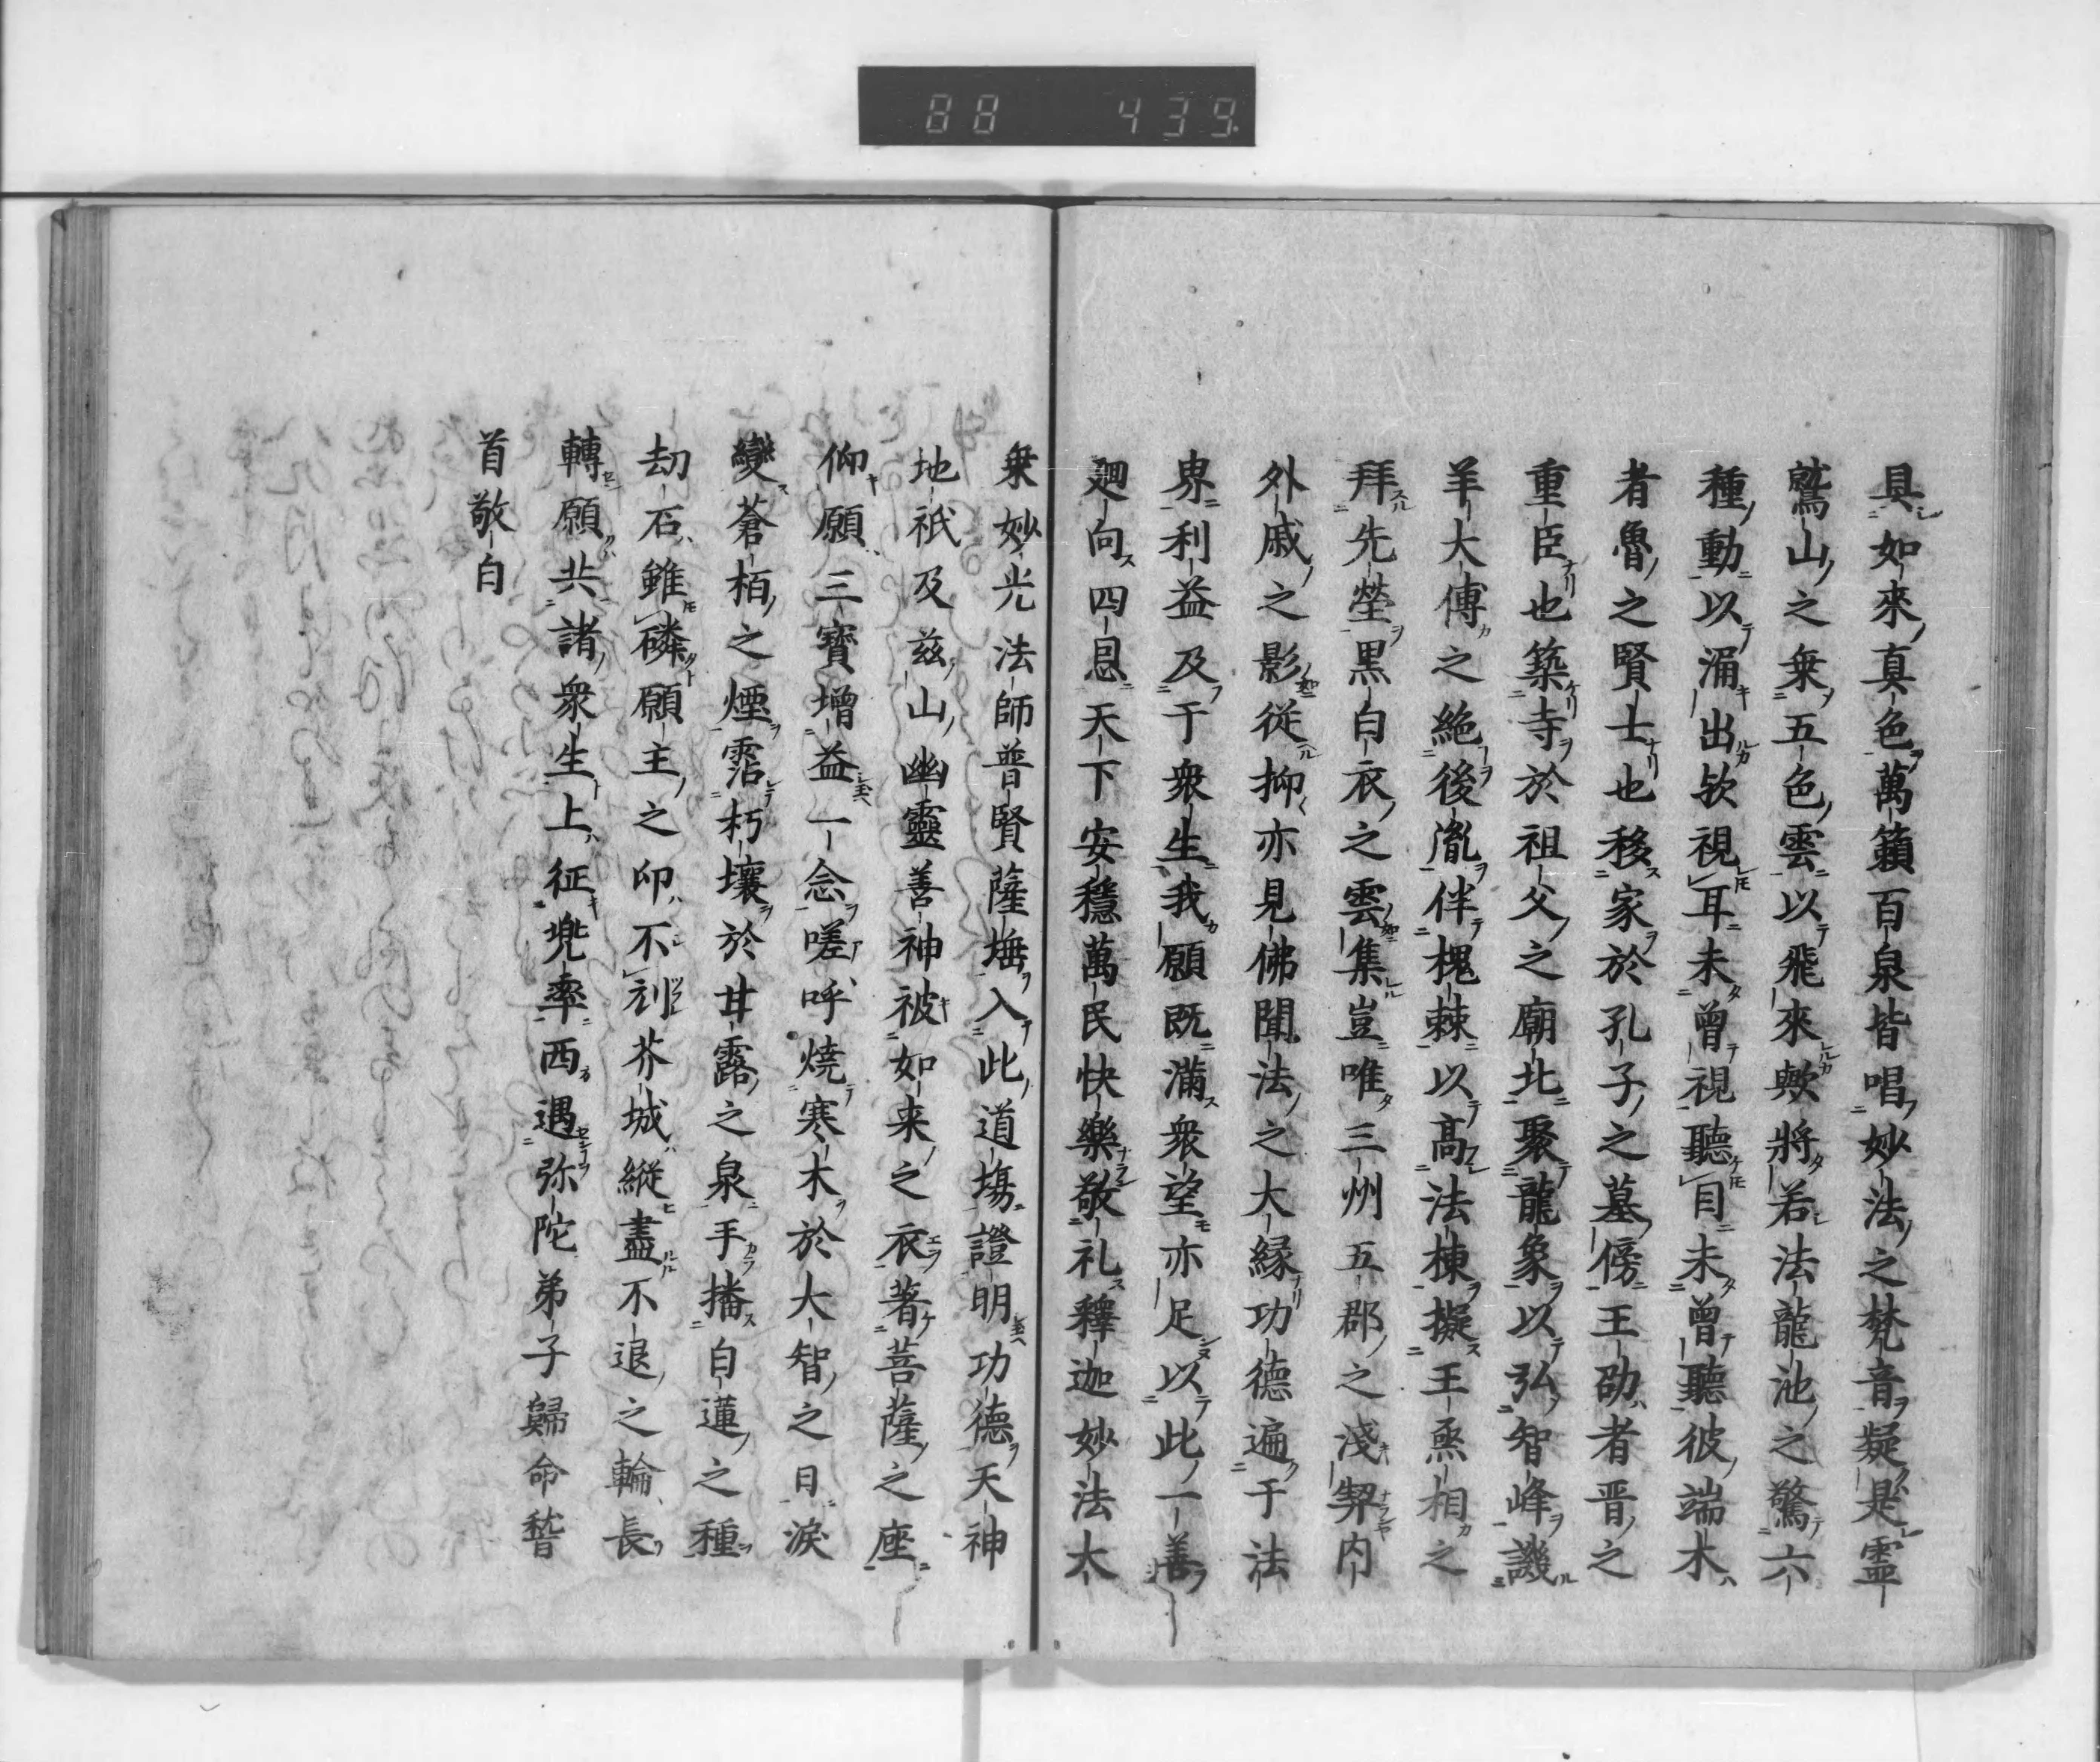 88 439
具如來真色萬籟百泉皆唱妙法之梵音疑是霊
鷲山之衆五色雲以飛來歟將若法龍池之驚六
種動以涌出欤視耳未曾視聽目未曾聽彼端木
者魯之賢士也移家於孔子之墓傍王劭者晋之
重臣也築寺於祖父之廟北聚龍象以弘智峰譏
羊大傅之絶後胤伴槐棘以高法棟擬王丞相之
拜先塋黒白衣之雲集豈唯三州五郡之淺契内
外戚之影從抑亦見佛聞法之大縁功德遍于法
界利益及于衆生我願既滿衆望亦足以此一善
廻向四恩天下安穩萬民快樂敬礼釋迦妙法太
衆妙光法師普賢薩埵入此道場證明功德天神
地祇及兹山幽靈善神被如来之衣著菩薩之座
仰願三寶增益一念嗟呼燒寒木於大智之日涙
變蒼栢之煙霑朽壤於甘露之泉手播白蓮之種
劫石雖磷願主之印不刓芥城縱盡不退之輪長
轉願共諸衆生上征兜率西遇弥陀弟子歸命稽
首敬白